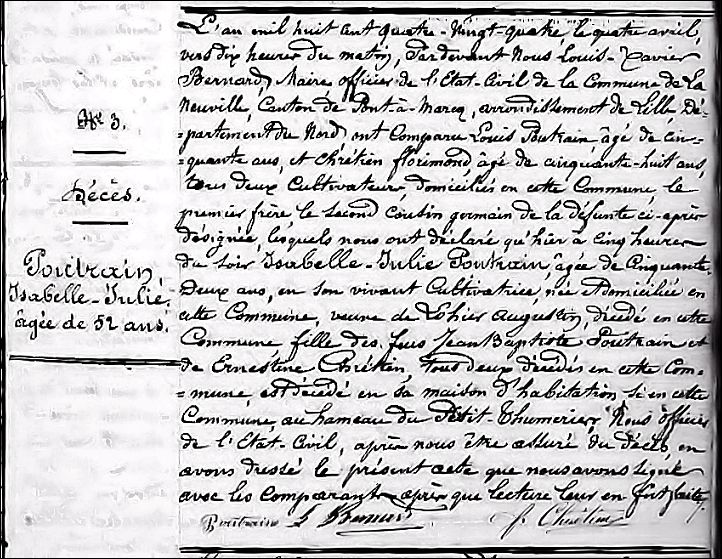 Nº 3.
Décès.
Poutrain
Isabelle-Julie,
âgée de 52 ans.
L'an mil huit cent quatre-vingt-quatre le quatre avril,
vers dix heures du matin, Pardevant Nous Louis-Xavier
Bernard, Maire officier de l'Etat-Civil de la Commune de La
Neuville, Canton de Pont-à-Marcq, arrondissement de Lille Dé-
=partement du Nord, ont Comparu Louis Poutrain, âgé de cin-
=quante ans, et Chrétien florimond âgé de cinquante-huit ans,
tous deux Cultivateurs, domiciliés en cette Commune, le
premier frère le second Cousin germain de la défunte ci-après
désignée, lesquels nous ont déclaré qu'hier à cinq heures
du soir Isabelle-Julie Poutrain, âgée de Cinquante-
Deux ans, en son vivant Cultivatrice, née et domiciliée en
cette Commune, veuve de Lohier Augustin, décédé en cette
Commune fille des feus Jean Baptiste Poutrain et
de Ernestine Chrétien, tous deux décédés en cette Com-
=mune, est décédé en sa maison d'habitation si en cette
Commune, au hameau du Petit Thumeries. Nous officier
de l'Etat-Civil, après nous être assuré du décès, en
avons dressé le présent acte que nous avons signé
avec les Comparants après que lecture leur en fut faite.
Poutrain L Bernard f. Chrétien